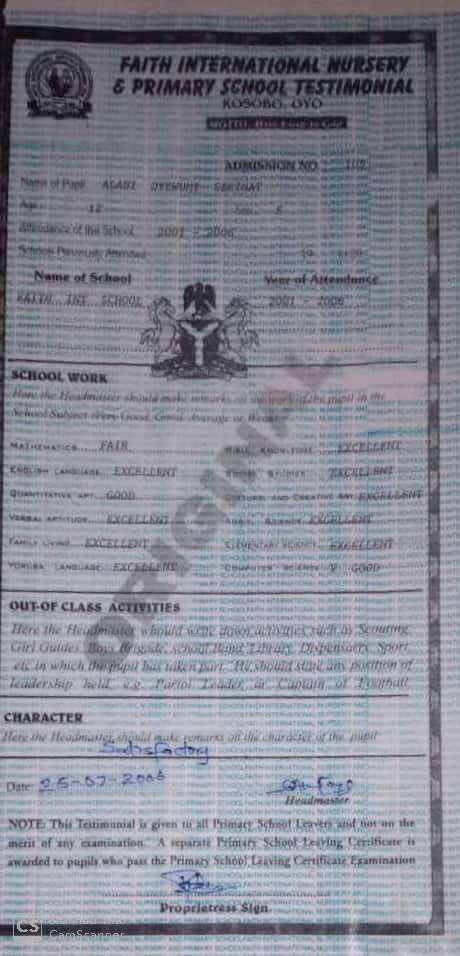 FAITH INTERNATIONAL NURSERY
& PRIMARY SCHOOL TESTIMONIAL
KOSOBO, OYO
MOTTO:
ADMISSION NO
Name of Pupil ALABI
Age 12
Attendance of this School 2001 - 2006
Schools Previously Attended 19
Name of School Year of Attendance
FAITH INT SCHOOL 2001 - 2006
ORIGINAL
SCHOOL WORK
Here the Headmaster should make remarks on the work of the pupil in the
School Subject Very Good, Good, Average or Weak
MATHEMATICS FAIR KNOWLEDGE EXCELLENT
ENGLISH LANGUAGE EXCELLENT STUDIES EXCELLENT
QUANTITATIVE APT. GOOD CULTURAL AND CREATIVE ART EXCELLENT
VERBAL APTITUDE EXCELLENT AGRIC SCIENCE EXCELLENT
FAMILY LIVING EXCELLENT ELEMENTARY SCIENCE EXCELLENT
YORUBA LANGUAGE EXCELLENT COMPUTER SCIENCE V GOOD
OUT-OF CLASS ACTIVITIES
Here the Headmaster whould write down activities such as Scouting
Girl Guides, Boys Brigade, school Band, Library, Dispensary, Sport,
etc in which the pupil has taken part. He should state any position of
leadership held, e.g. Partol Leader, or Captain of Football
CHARACTER
Here the Headmaster should make remarks on the character of the pupil
Satisfactory
Date: 25-07-2006
Headmaster
NOTE: This Testimonial is given to all Primary School Leavers and not on the
merit of any examination. A separate Primary School Leaving Certificate is
awarded to pupils who pass the Primary School Leaving Certificate Examination
Proprietress Sign
CS CamScanner